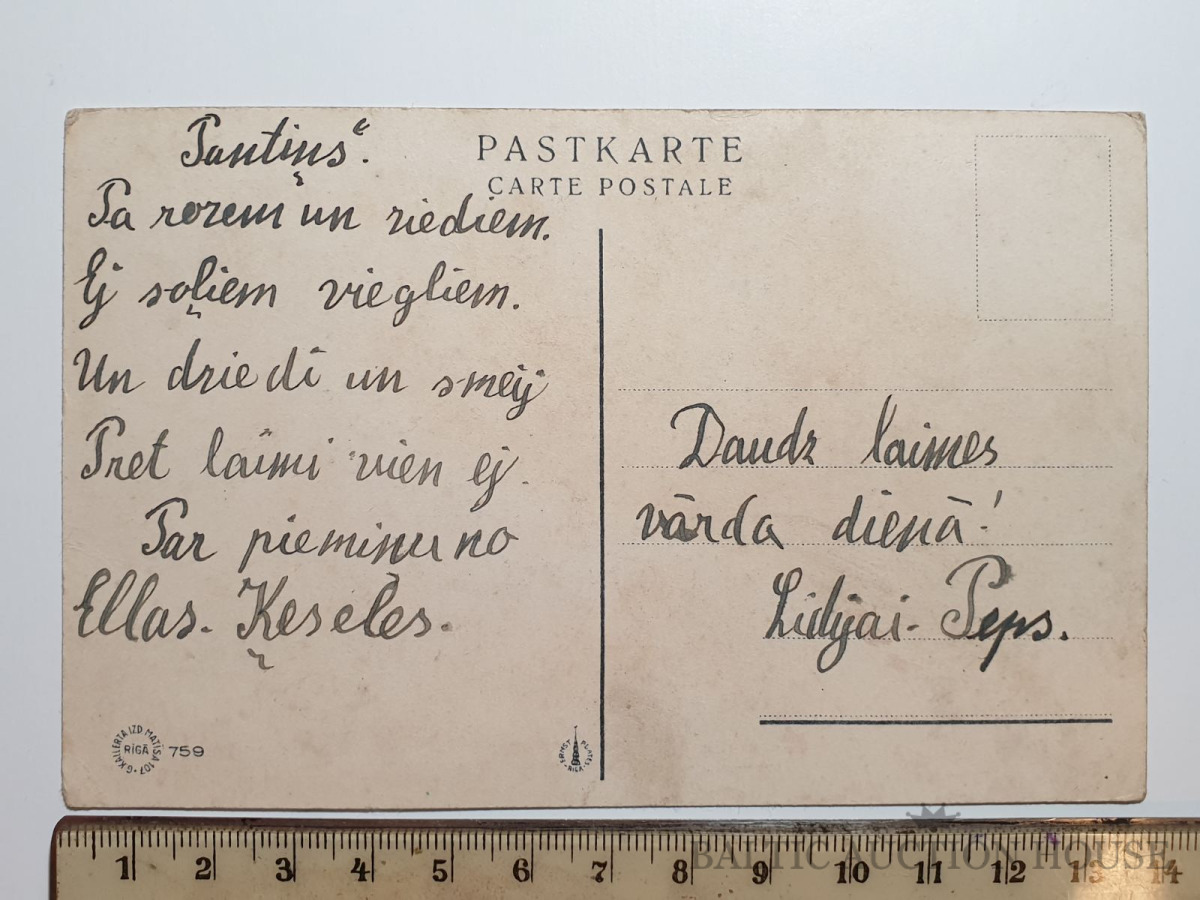 Pantiņš“.
Pa rozem un ziediem.
Ej soļiem viegliem.
Un dziedi un smejj
Pret laimi vien ej.
Par pieminu no
Ellas. Ķeseles.
PASTKARTE
CARTE POSTALE
Daudz laimes
vārda dienā!
Lidijai. Peps.
G. KALLERTA IZD. MATISA 107
RĪGĀ
759
ERNST PLATES RIGA
1 2 3 4 5 6 7 8 9 10 11 12 13 14
BALTIC AUCTION HOUSE